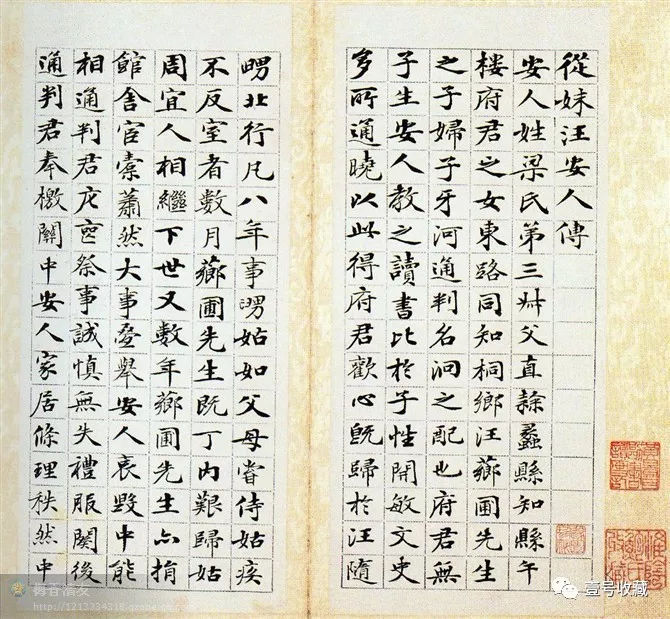 從妹汪安人傳
安人姓梁氏第三叔父直隸蠡縣知縣午
樓府君之女東路同知桐鄉汪薌圃先生
之子婦子牙河通判名泂之配也府君無
子生安人教之讀書比於子性開敏文史
多所通曉以此得府君歡心既歸於汪隨
舅北行凡八年事舅姑如父母嘗侍姑疾
不反室者數月薌圃先生既丁内艱歸姑
周宜人相繼下世又數年薌圃先生亦捐
館舍宦橐蕭然大事疊舉安人哀毀中能
相通判君庀喪祭事誠慎無失禮服闋後
通判君奉檄關中安人家居條理秩然中
壹号收藏